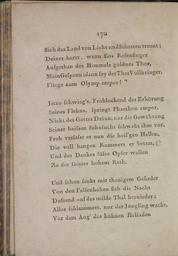 170
Sich das Land von Licht und Schatten trennt;
Deiner harrt, wenn Eos Rosenfinger
Aufgethan des Himmels goldnes Thor,
Mein Gespann; dann sey der That Vollbringer,
Fliege zum Olymp empor! "
Jener schwieg's. Frohlockend der Erhörung
Seines Flehns, springt Phaethon empor.
Nicht des Gottes Dräun, nur die Gewährung
Seiner heissen Sehnsucht schwebt ihm vor.
Froh verläßt er nun die heil'gen Hallen,
Die voll bangen Kummers er betrat,
Und des Dankes süße Opfer wallen
Zu der Götter hohem Rath.
Und schon senkt mit thauigem Gefieder
Von den Felsenhöhen sich die Nacht
Duftend auf das milde Thal hernieder;
Alles schlummert, nur der Jüngling wacht.
Vor dem Aug' des kühnen Heliaden